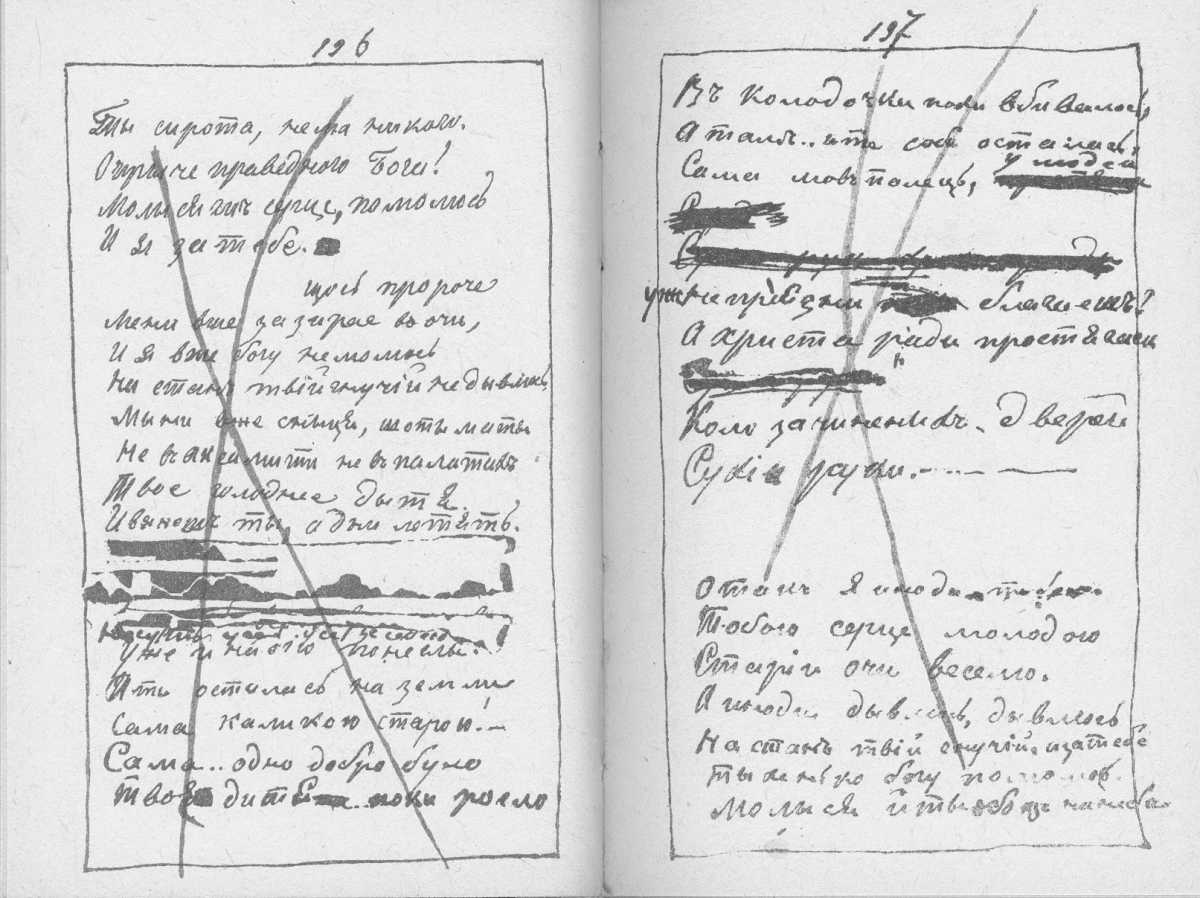 196
Ты сирота, нема никого.
Опричче праведного Бога!
Молися жъ серце, помолюсь
И я за тебе.
щось пророче
Мени вже зазирае во очи,
И я вже богу не молюсь
На станъ твій гнучій не дывлюсь
Мыни вже снытця, що ты маты
Не въ оксамити не въ палатахъ
Твое голоднее дытя.
И вянешъ ты, а дни лотять.
Уже и на його понеслы.
И ты осталась на земли
Сама каликою старою!
Сама.. одно добро було
твое дитя поки росло
197
Въ колодочки поки вбивалось,
А тамъ.. и ти соби осталась,
у людей
Сама мовъ палець,
ужъ не прязни благаешъ?
А христа ради простягаешъ
Коло зачиненихъ дверей
Сухія руки.
Отакъ я иноди тобою
Тобою серце молодою
Старіи очи веселю.
А иноди дывлюсь, дывлюсь
На станъ твій гнучій и за тебе
Тыхенько богу помолюсь.
Молися й ты